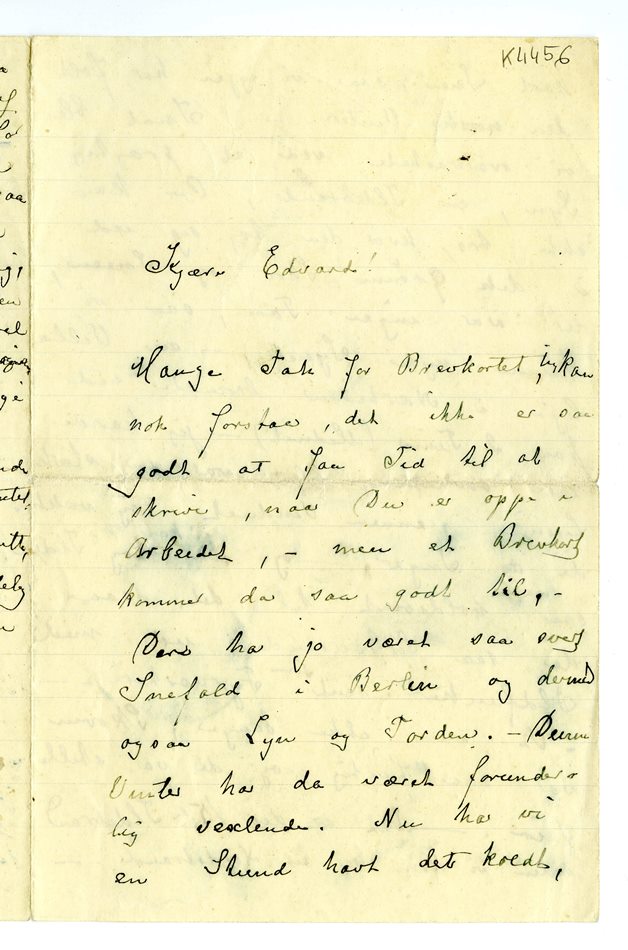 K4456
Kjære Edvard!
Mange Tak for Brevkortet, jeg kan
nok forstaa, det ikke er saa
godt at faa Tid til at
skrive, naar Du er oppe i
Arbeidet, – men et Brevkort
kommer da saa godt til, –
Der ha jo været saa svert
Snefald i Berlin og dermed
ogsaa Lyn og Torden. – Denne
Vinter har da været forunder-
lig vexlende. Nu har vi
en Stund havt det koldt,